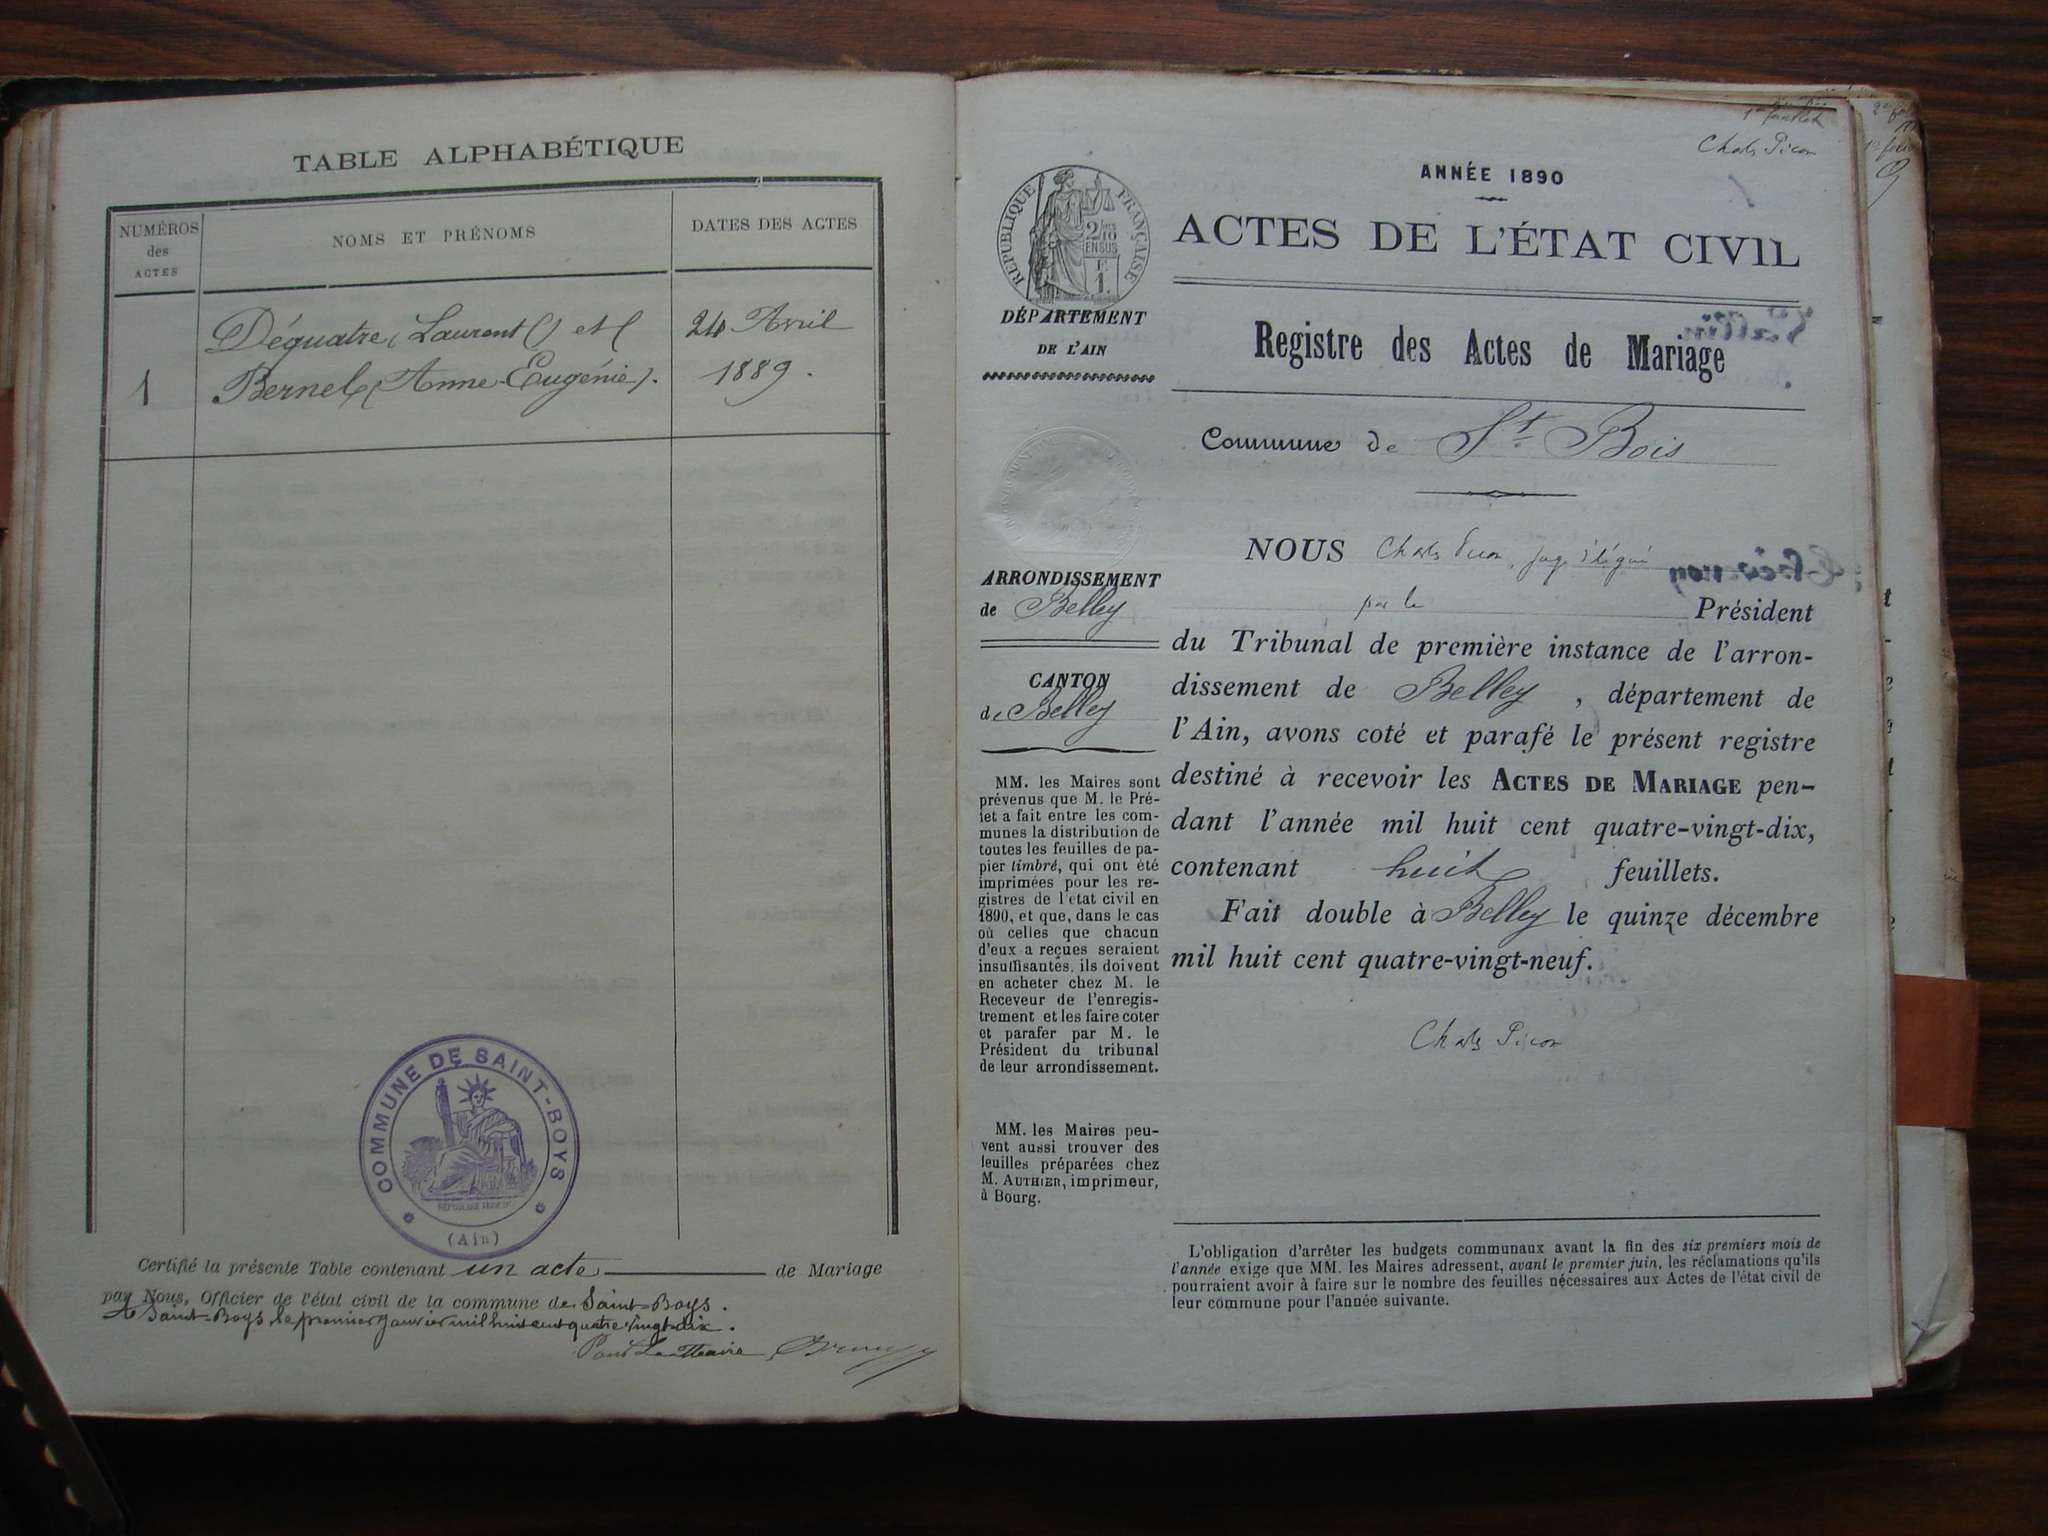 TABLE ALPHABÉTIQUE
NUMÉROS
des
ACTES
NOMS ET PRÉNOMS
DATES DES ACTES
Déquatre (Laurent) et
24 Avril
1
Bernel (Anne-Eugénie).
1889.
COMMUNE DE SAINT-BOYS
(Ain)
Certifié la présente Table contenant un acte de Mariage
par Nous, Officier de l'état civil de la commune de Saint-Boys.
A Saint-Boys, le premier janvier mil huit cent quatre vingt dix.
Pour Le Maire,
Charles Picon
ANNÉE 1890
RÉPUBLIQUE FRANÇAISE
2/10
EN SUS
F.
1.
ACTES DE L'ÉTAT CIVIL
DÉPARTEMENT
DE L'AIN
Registre des Actes de Mariage
Commune de St. Bois
ARRONDISSEMENT
de Belley
CANTON
de Belley
MM. les Maires sont
prévenus que M. le Pré-
fet a fait entre les com-
munes la distribution de
toutes les feuilles de pa-
pier timbré, qui ont été
imprimées pour les re-
gistres de l'état civil en
1890, et que, dans le cas
où celles que chacun
d'eux a reçues seraient
insuffisantes, ils doivent
en acheter chez M. le
Receveur de l'enregis-
trement et les faire coter
et parafer par M. le
Président du tribunal
de leur arrondissement.
MM. les Maires peu-
vent aussi trouver des
feuilles préparées chez
M. AUTHIER, imprimeur,
à Bourg.
NOUS Charles Picon, juge délégué
par le Président
du Tribunal de première instance de l'arron-
dissement de Belley, département de
l'Ain, avons coté et parafé le présent registre
destiné à recevoir les ACTES DE MARIAGE pen-
dant l'année mil huit cent quatre-vingt-dix,
contenant huit feuillets.
Fait double à Belley le quinze décembre
mil huit cent quatre-vingt-neuf.
Charles Picon
L'obligation d'arrêter les budgets communaux avant la fin des six premiers mois de
l'année exige que MM. les Maires adressent, avant le premier juin, les réclamations qu'ils
pourraient avoir à faire sur le nombre des feuilles nécessaires aux Actes de l'état civil de
leur commune pour l'année suivante.